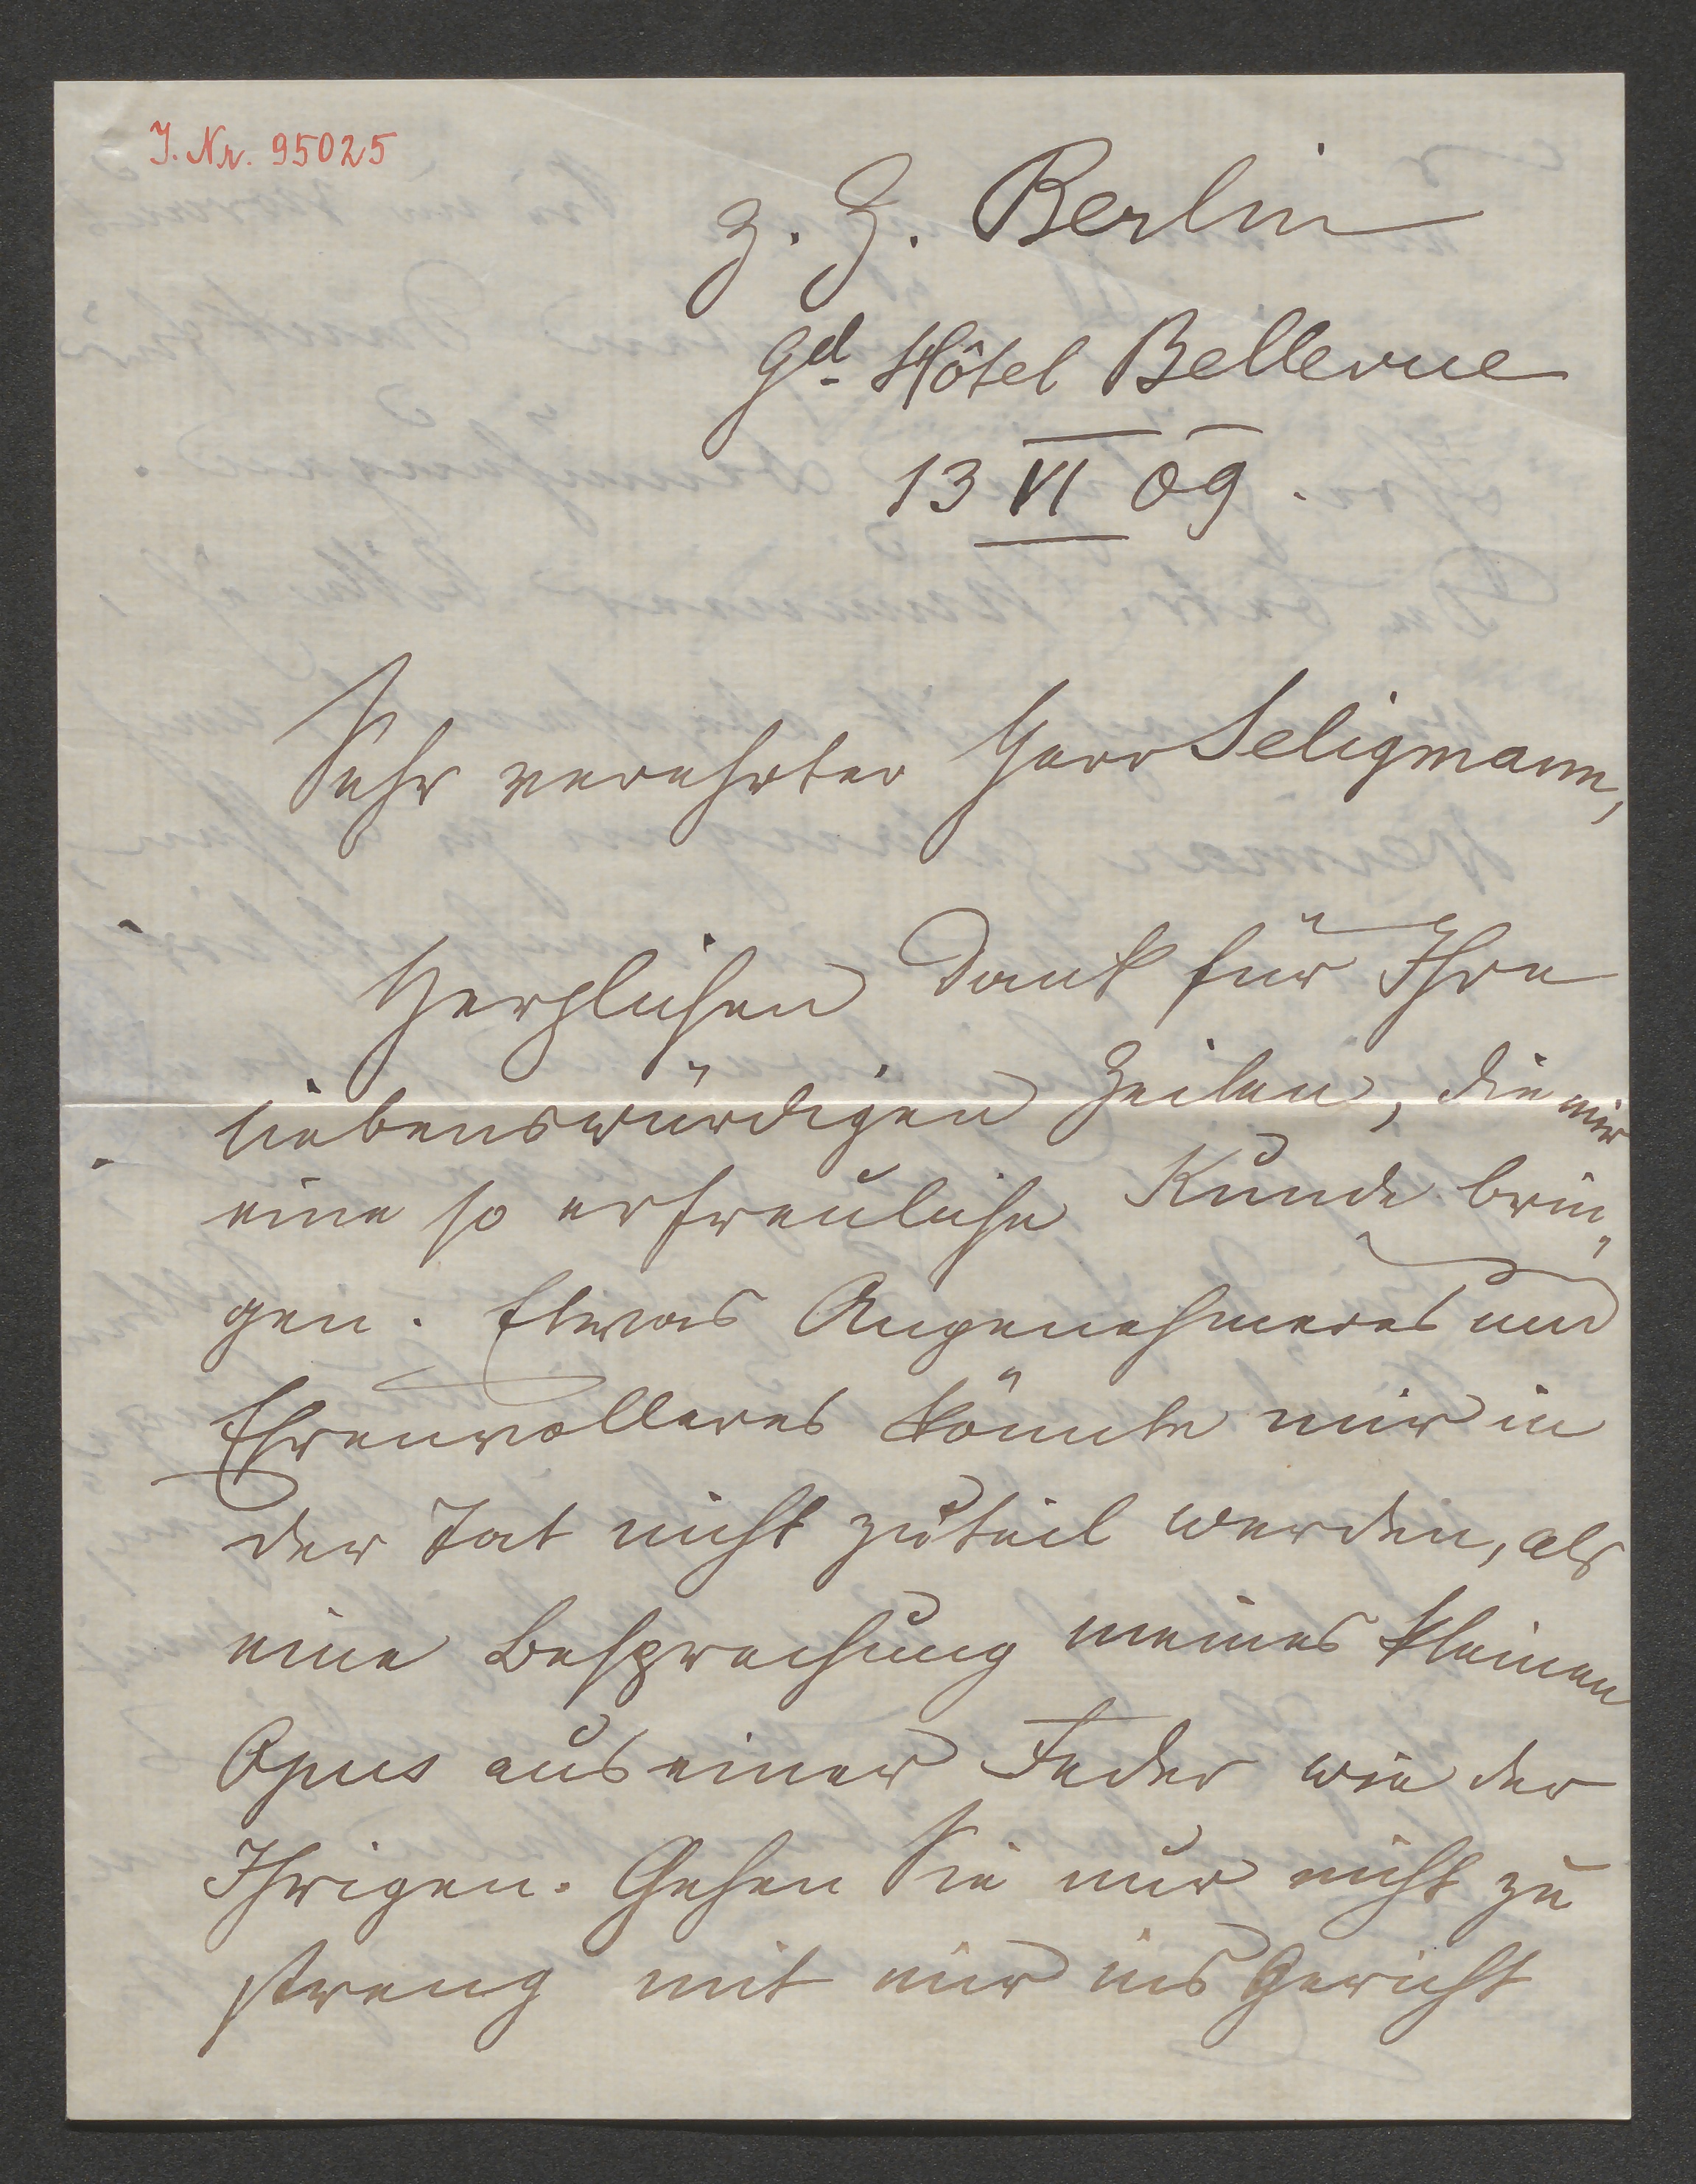 J. Nr. 95025
z. Z. Berlin
Gd Hôtel Bellevue
13 VI 09.
Sehr verehrter Herr Seligmann,
Herzlichen Dank für Ihre
liebenswürdigen Zeilen, die mir
eine so erfreuliche Kunde brin„
gen. Etwas Angenehmeres und
Ehrenvolleres könnte mir in
der Tat nicht zuteil werden, als
eine Besprechung meines kleinen
Opus aus einer Feder wie der
Ihrigen. Gehen Sie nur nicht zu
streng mit mir ins Gericht